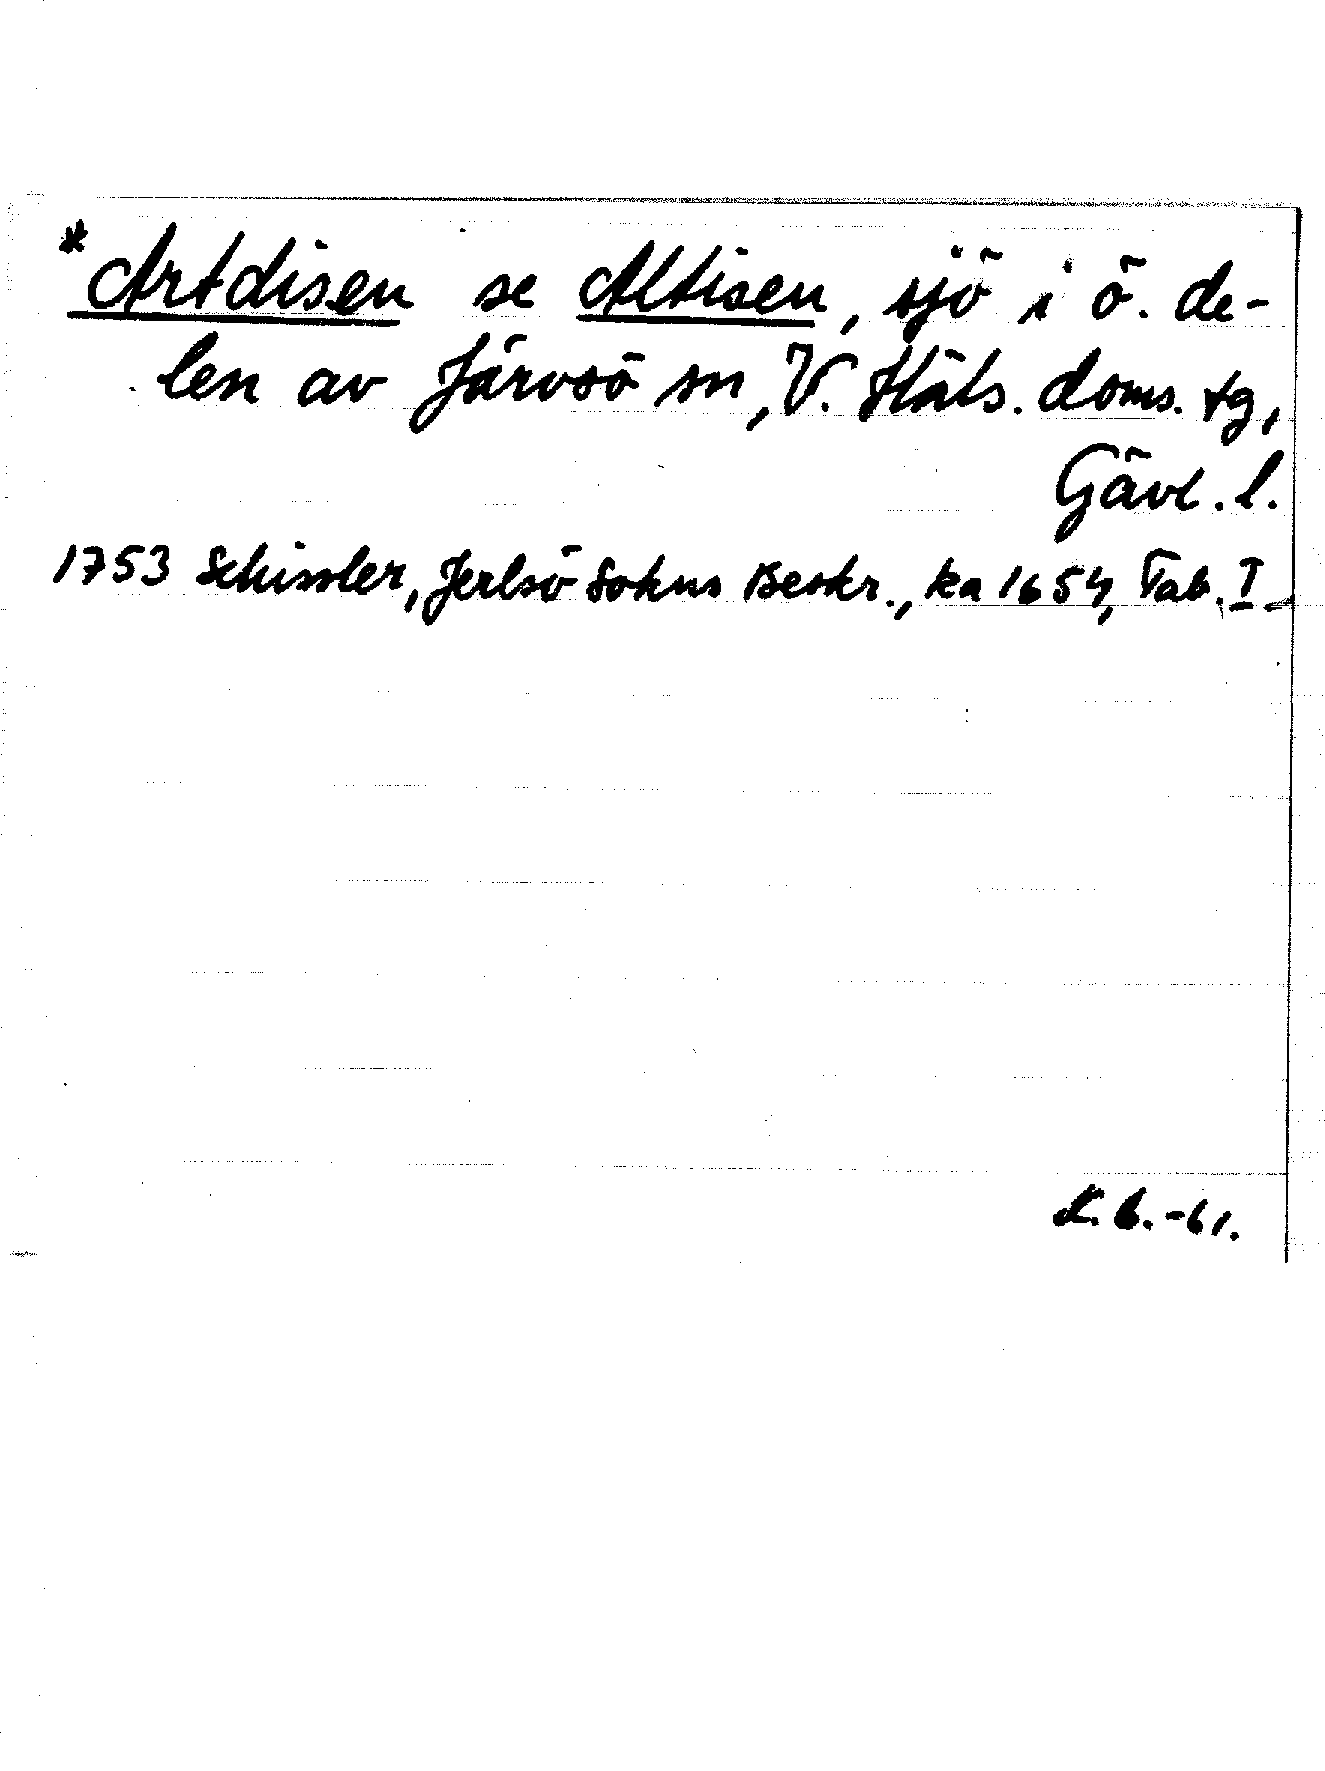 *Artdisen se Altisen, sjö i ö. de-
len av Järvsö sn, V. Häls. doms. tg,
Gävl. l.
1753 Schissler, Jerlsö Sokns Beskr., ka 1654, Tab. I
K. b. -61.